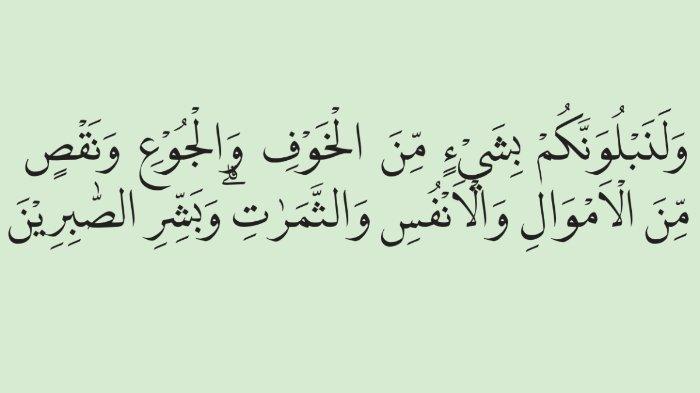 وَلَنَبْلُوَنَّكُمْ بِشَيْءٍ مِّنَ الْخَوْفِ وَالْجُوْعِ وَنَقْصٍ
مِّنَ الْاَمْوَالِ وَالْاَنْفُسِ وَالثَّمَرٰتِۗ وَبَشِّرِ الصّٰبِرِيْنَ